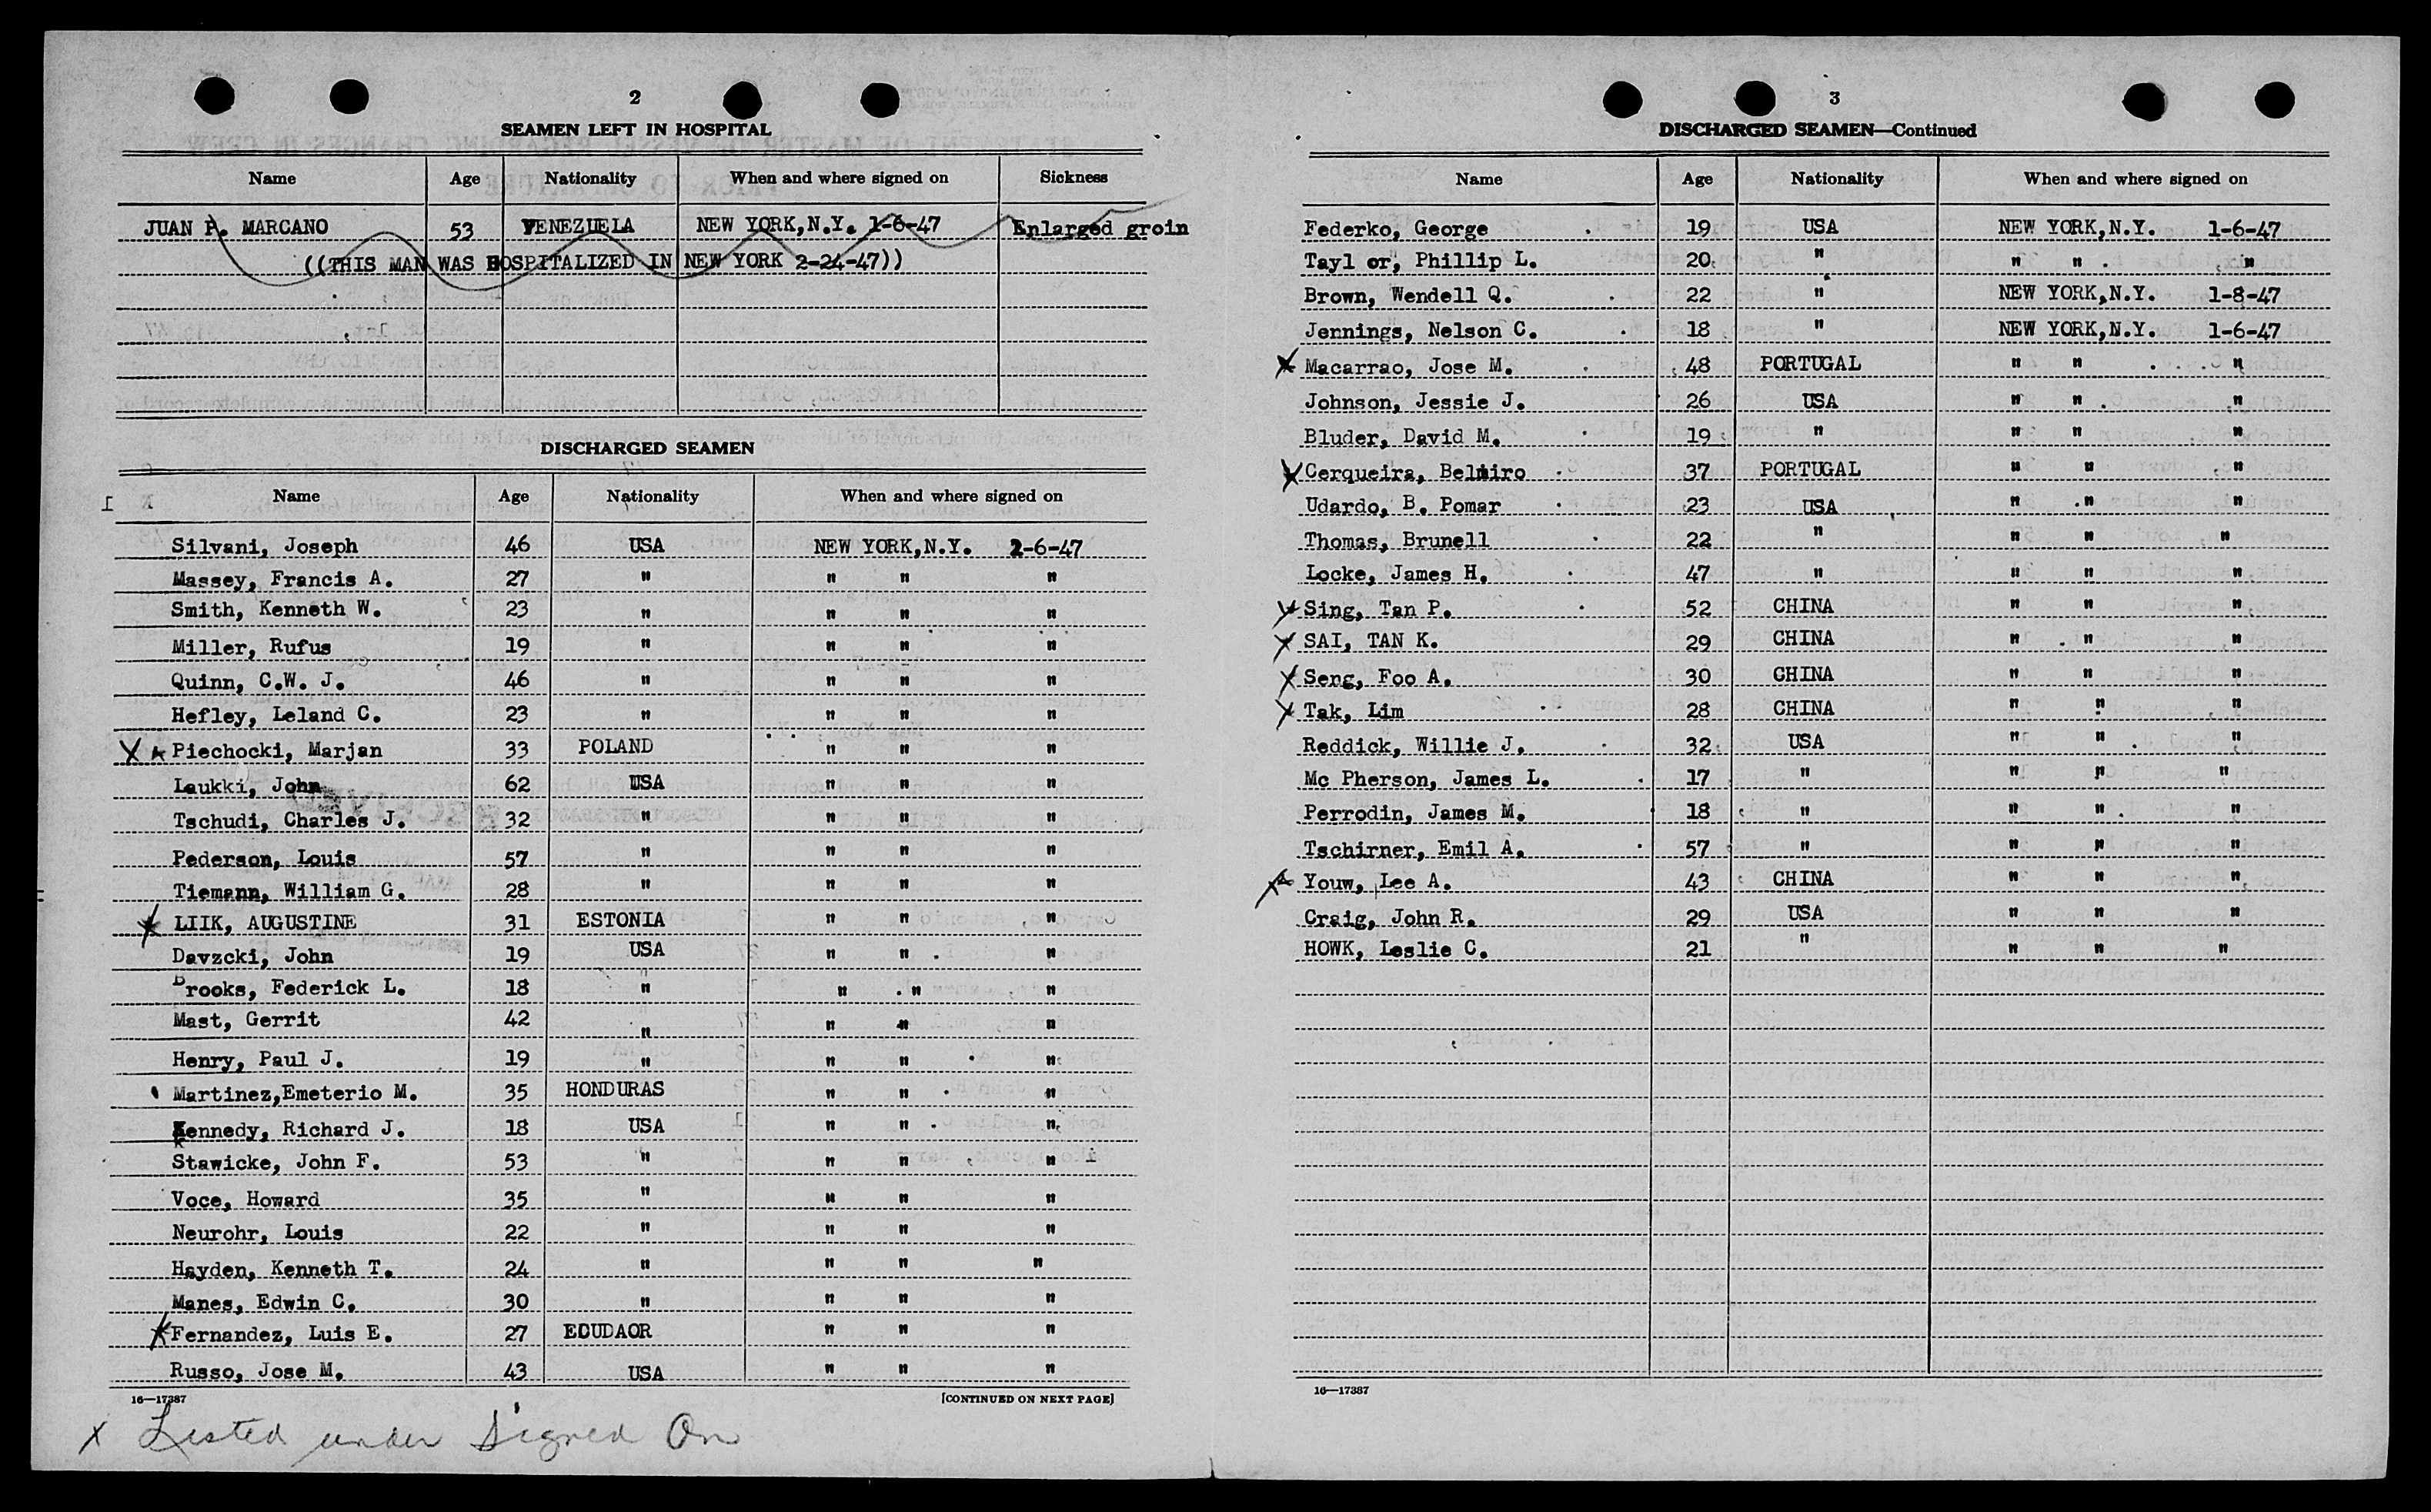 2
SEAMEN LEFT IN HOSPITAL
Name Age Nationality When and where signed on Sickness
JUAN P. MARCANO 53 VENEZUELA NEW YORK,N.Y. 1-6-47 Enlarged groin
((THIS MAN WAS HOSPITALIZED IN NEW YORK 2-24-47))
DISCHARGED SEAMEN
Name Age Nationality When and where signed on
Silvani, Joseph 46 USA NEW YORK,N.Y. 2-6-47
Massey, Francis A. 27 " " " "
Smith, Kenneth W. 23 " " " "
Miller, Rufus 19 " " " "
Quinn, C.W. J. 46 " " " "
Hefley, Leland C. 23 " " " "
X x Piechocki, Marjan 33 POLAND " " "
Laukki, John 62 USA " " "
Tschudi, Charles J. 32 " " " "
Pederson, Louis 57 " " " "
Tiemann, William G. 28 " " " "
x LIIK, AUGUSTINE 31 ESTONIA " " "
Davzcki, John 19 USA " " "
Brooks, Federick L. 18 " " " "
Mast, Gerrit 42 " " " "
Henry, Paul J. 19 " " " "
Martinez,Emeterio M. 35 HONDURAS " " "
Kennedy, Richard J. 18 USA " " "
Stawicke, John F. 53 " " " "
Voce, Howard 35 " " " "
Neurohr, Louis 22 " " " "
Hayden, Kenneth T. 24 " " " "
Manes, Edwin C. 30 " " " "
x Fernandez, Luis E. 27 ECUDAOR " " "
Russo, Jose M. 43 USA " " "
16—17387 [CONTINUED ON NEXT PAGE]
x Listed under Signed On
3
DISCHARGED SEAMEN—Continued
Name Age Nationality When and where signed on
Federko, George 19 USA NEW YORK,N.Y. 1-6-47
Tayl or, Phillip L. 20 " " " "
Brown, Wendell Q. 22 " NEW YORK,N.Y. 1-8-47
Jennings, Nelson C. 18 " NEW YORK,N.Y. 1-6-47
x Macarrao, Jose M. 48 PORTUGAL " " "
Johnson, Jessie J. 26 USA " " "
Bluder, David M. 19 " " " "
x Cerqueira, Belmiro 37 PORTUGAL " " "
Udardo, B. Pomar 23 USA " " "
Thomas, Brunell 22 " " " "
Locke, James H. 47 " " " "
x Sing, Tan P. 52 CHINA " " "
x SAI, TAN K. 29 CHINA " " "
x Seng, Foo A. 30 CHINA " " "
x Tak, Lim 28 CHINA " " "
Reddick, Willie J. 32 USA " " "
Mc Pherson, James L. 17 " " " "
Perrodin, James M. 18 " " " "
Tschirner, Emil A. 57 " " " "
x Youw, Lee A. 43 CHINA " " "
Craig, John R. 29 USA " " "
HOWK, Leslie C. 21 " " " "
16—17387